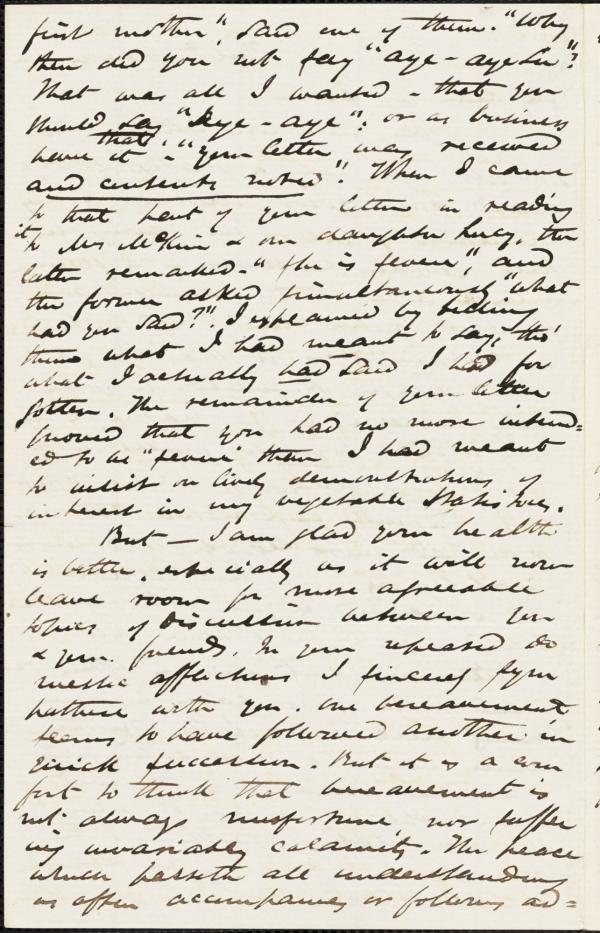 first mother", said one of them. "Why
then did you not say "aye-aye Sir"?
That was all I wanted - that you
should say "Aye-aye"; or as business
have it - "your letter was received
that
and contents noted". When I came
to that part of your letter in reading
it to Mrs McKim & our daughter Lucy, the
latter remarked - "She is severe", and
the former asked simultaneously "what
had you said?". I explained by telling
them what I had meant to say, tho'
what I actually had said I had for
gotten. The remainder of your letter
proved that you had no more intend=
ed to be "severe" than I had meant
to insist on lively demonstrations of
interest in my vegetable statistics.
But — I am glad your health
is better, especially as it will now
leave room for more agreeable
topics of discussion between you
& your friends. In your repeated do
mestic afflictions I sincerely sym
pathise with you. One bereavement
seems to have followed another in
quick succession. But it is a com
fort to think that bereavement is
not always misfortune, nor suffer
ing invariably calamity. The peace
which passeth all understanding
as often accompanies or follows ad=